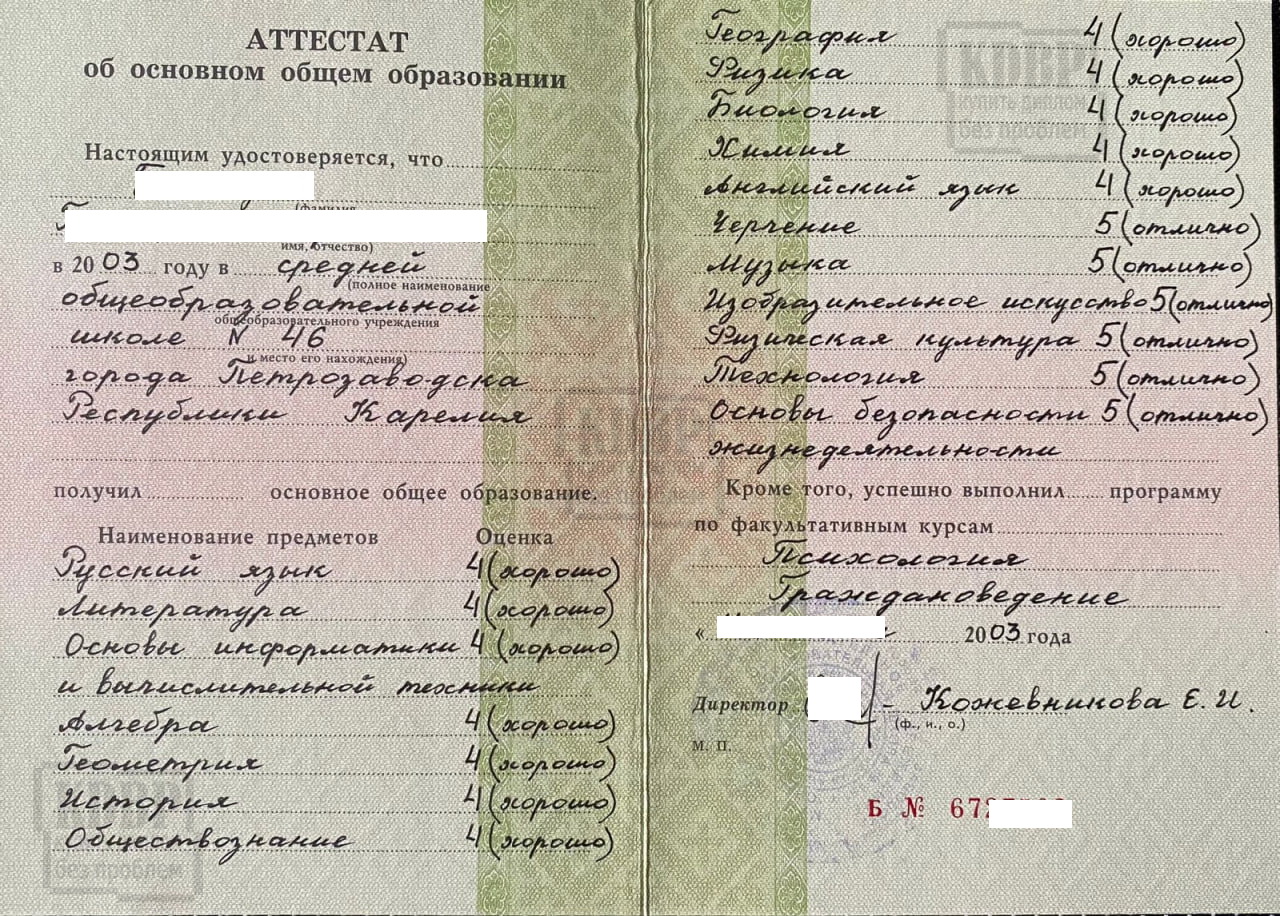 АТТЕСТАТ
об основном общем образовании
Настоящим удостоверяется, что
(фамилия
имя, отчество)
в 2003 году в средней
(полное наименование
общеобразовательной
общеобразовательного учреждения
школе N 46
и место его нахождения)
города Петрозаводска
Республики Карелия
получил основное общее образование.
Наименование предметов Оценка
Русский язык 4 (хорошо)
Литература 4 (хорошо)
Основы информатики 4 (хорошо)
и вычислительной техники
Алгебра 4 (хорошо)
Геометрия 4 (хорошо)
История 4 (хорошо)
Обществознание 4 (хорошо)
без проблем
География 4 (хорошо)
Физика 4 (хорошо)
Биология 4 (хорошо)
Химия 4 (хорошо)
Английский язык 4 (хорошо)
Черчение 5 (отлично)
Музыка 5 (отлично)
Изобразительное искусство 5 (отлично)
Физическая культура 5 (отлично)
Технология 5 (отлично)
Основы безопасности 5 (отлично)
жизнедеятельности
купить диплом
без проблем
Кроме того, успешно выполнил программу
по факультативным курсам
Психология
Граждановедение
« 2003 года
Директор Кожевникова Е. И.
(ф., и., о.)
М. П.
Б № 67